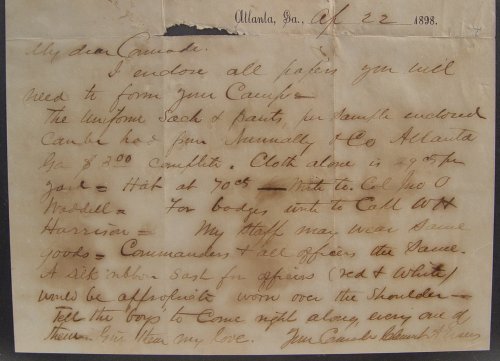 Atlanta, Ga., Ap 22 1898.
My dear Comrade.
I enclose all papers you will
need to form your Camp =
The Uniform Sack & pants, per sample enclosed
Can be had from Nunnally & Co Atlanta
Ga $ 3.00 Complete. Cloth alone is 29 cts per
yard = Hat at 70 cts — Write to. Col Jno O
Waddell = For badges write to Capt W H
Harrison = My Staff may wear same
goods = Commanders & all officers the same.
A silk ribbon sash for officers (red & white)
would be appropriate worn over the shoulder —
Tell the boys to come right along, every one of
them. Give them my love. Your Comrade Clement A Evans